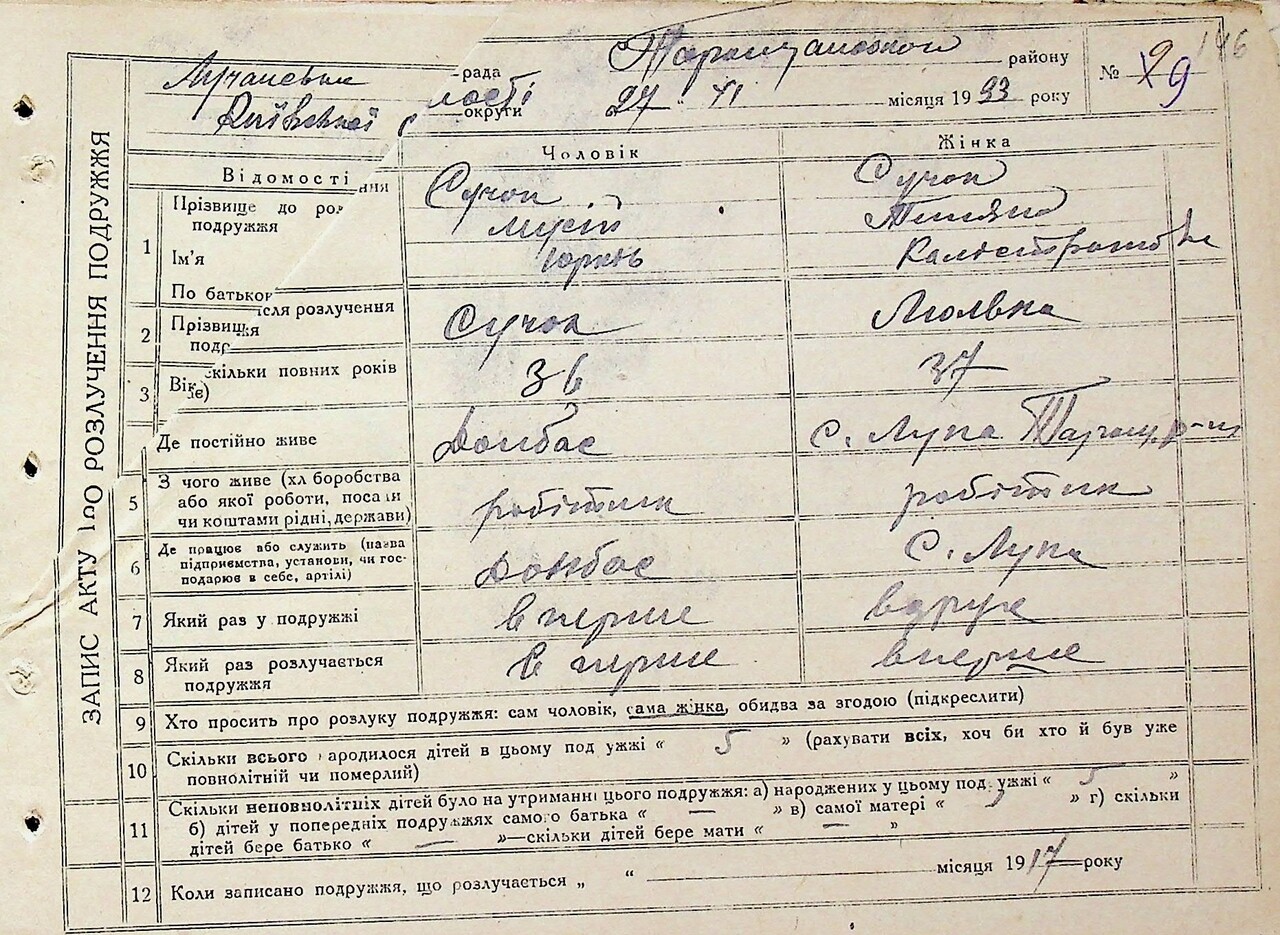 146
рада Таращанського району № 9
Київської області округи 27 " XI місяця 1933 року
ЗАПИС АКТУ ПРО РОЗЛУЧЕННЯ ПОДРУЖЖЯ
Відомості Чоловік Жінка
1 Прізвище до роз ння подружжя Сучок Сучок
Ім'я Мусій Тетяна
По батькові Юрків Калістратов
2 Прізвищ ісля розлучення подр жя Сучок Люлька
3 Вік скільки повних років є) 36 37
Де постійно живе Донбас С. Лука Таращ. р-н
5 З чого живе (хл боробства або якої роботи, посади чи коштами рідні, держави) робітник робітник
6 Де працює або служить (назва підприємства, установи, чи господарює в себе, артілі) Донбас С. Лука
7 Який раз у подружжі в перше вдруге
8 Який раз розлучається подружжя в перше вперше
9 Хто просить про розлуку подружжя: сам чоловік, сама жінка, обидва за згодою (підкреслити)
10 Скільки всього народилося дітей в цьому под ужжі « 5 » (рахувати всіх, хоч би хто й був уже
повнолітній чи померлий)
11 Скільки неповнолітніх дітей було на утриманні цього подружжя: а) народжених у цьому подружжі « 5 »
б) дітей у попередніх подружжях самого батька « — » в) самої матері « » г) скільки
дітей бере батько « — »—скільки дітей бере мати « — »
12 Коли записано подружжя, що розлучається „ “ місяця 1917 року